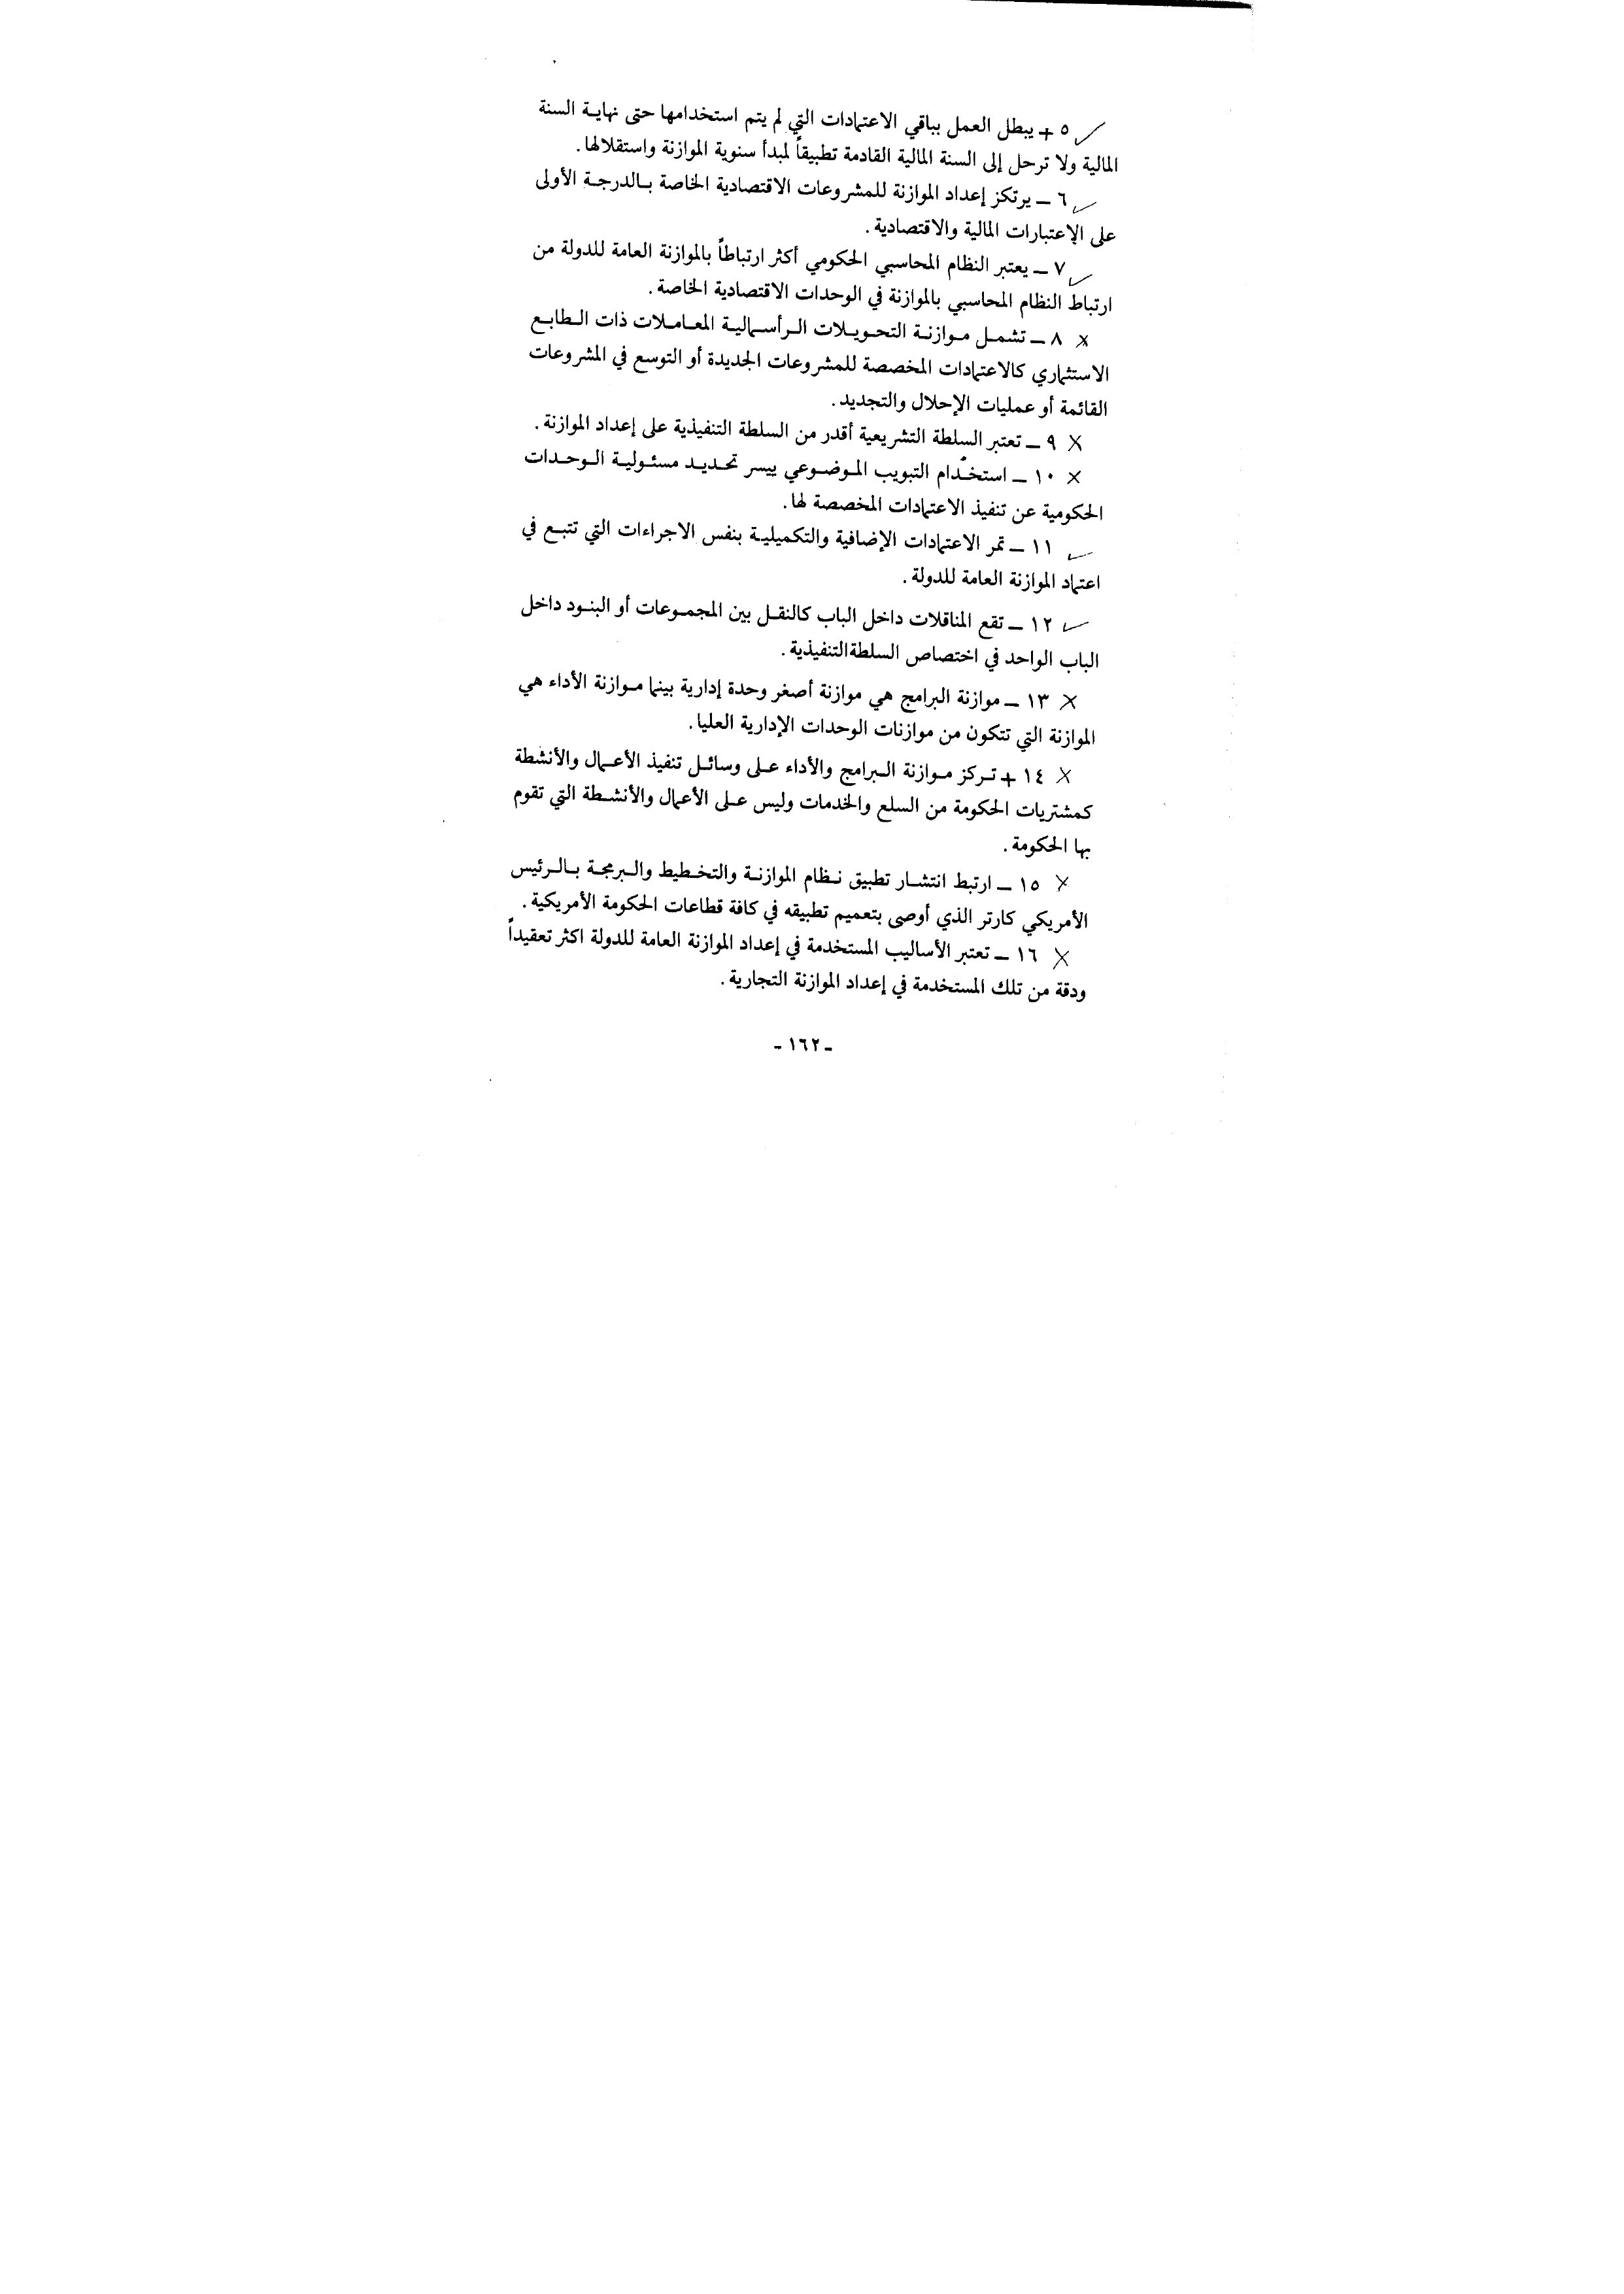 ✓ ٥ + يبطل العمل بباقي الاعتمادات التي لم يتم استخدامها حتى نهاية السنة
المالية ولا ترحل إلى السنة المالية القادمة تطبيقاً لمبدأ سنوية الموازنة واستقلالها.
✓ ٦ ــ يرتكز إعداد الموازنة للمشروعات الاقتصادية الخاصة بالدرجة الأولى
على الإعتبارات المالية والاقتصادية.
✓ ٧ ــ يعتبر النظام المحاسبي الحكومي أكثر ارتباطاً بالموازنة العامة للدولة من
ارتباط النظام المحاسبي بالموازنة في الوحدات الاقتصادية الخاصة.
× ٨ ــ تشمل موازنة التحويلات الرأسمالية المعاملات ذات الطابع
الاستثماري كالاعتمادات المخصصة للمشروعات الجديدة أو التوسع في المشروعات
القائمة أو عمليات الإحلال والتجديد.
× ٩ ــ تعتبر السلطة التشريعية أقدر من السلطة التنفيذية على إعداد الموازنة.
× ١٠ ــ استخدام التبويب الموضوعي ييسر تحديد مسئولية الوحدات
الحكومية عن تنفيذ الاعتمادات المخصصة لها.
✓ ١١ ــ تمر الاعتمادات الإضافية والتكميلية بنفس الاجراءات التي تتبع في
اعتماد الموازنة العامة للدولة.
✓ ١٢ ــ تقع المناقلات داخل الباب كالنقل بين المجموعات أو البنود داخل
الباب الواحد في اختصاص السلطة التنفيذية.
× ١٣ ــ موازنة البرامج هي موازنة أصغر وحدة إدارية بينما موازنة الأداء هي
الموازنة التي تتكون من موازنات الوحدات الإدارية العليا.
× ١٤ + تركز موازنة البرامج والأداء على وسائل تنفيذ الأعمال والأنشطة
كمشتريات الحكومة من السلع والخدمات وليس على الأعمال والأنشطة التي تقوم
بها الحكومة.
× ١٥ ــ ارتبط انتشار تطبيق نظام الموازنة والتخطيط والبرمجة بالرئيس
الأمريكي كارتر الذي أوصى بتعميم تطبيقه في كافة قطاعات الحكومة الأمريكية.
× ١٦ ــ تعتبر الأساليب المستخدمة في إعداد الموازنة العامة للدولة اكثر تعقيداً
ودقة من تلك المستخدمة في إعداد الموازنة التجارية.
ـ ١٦٢ ـ